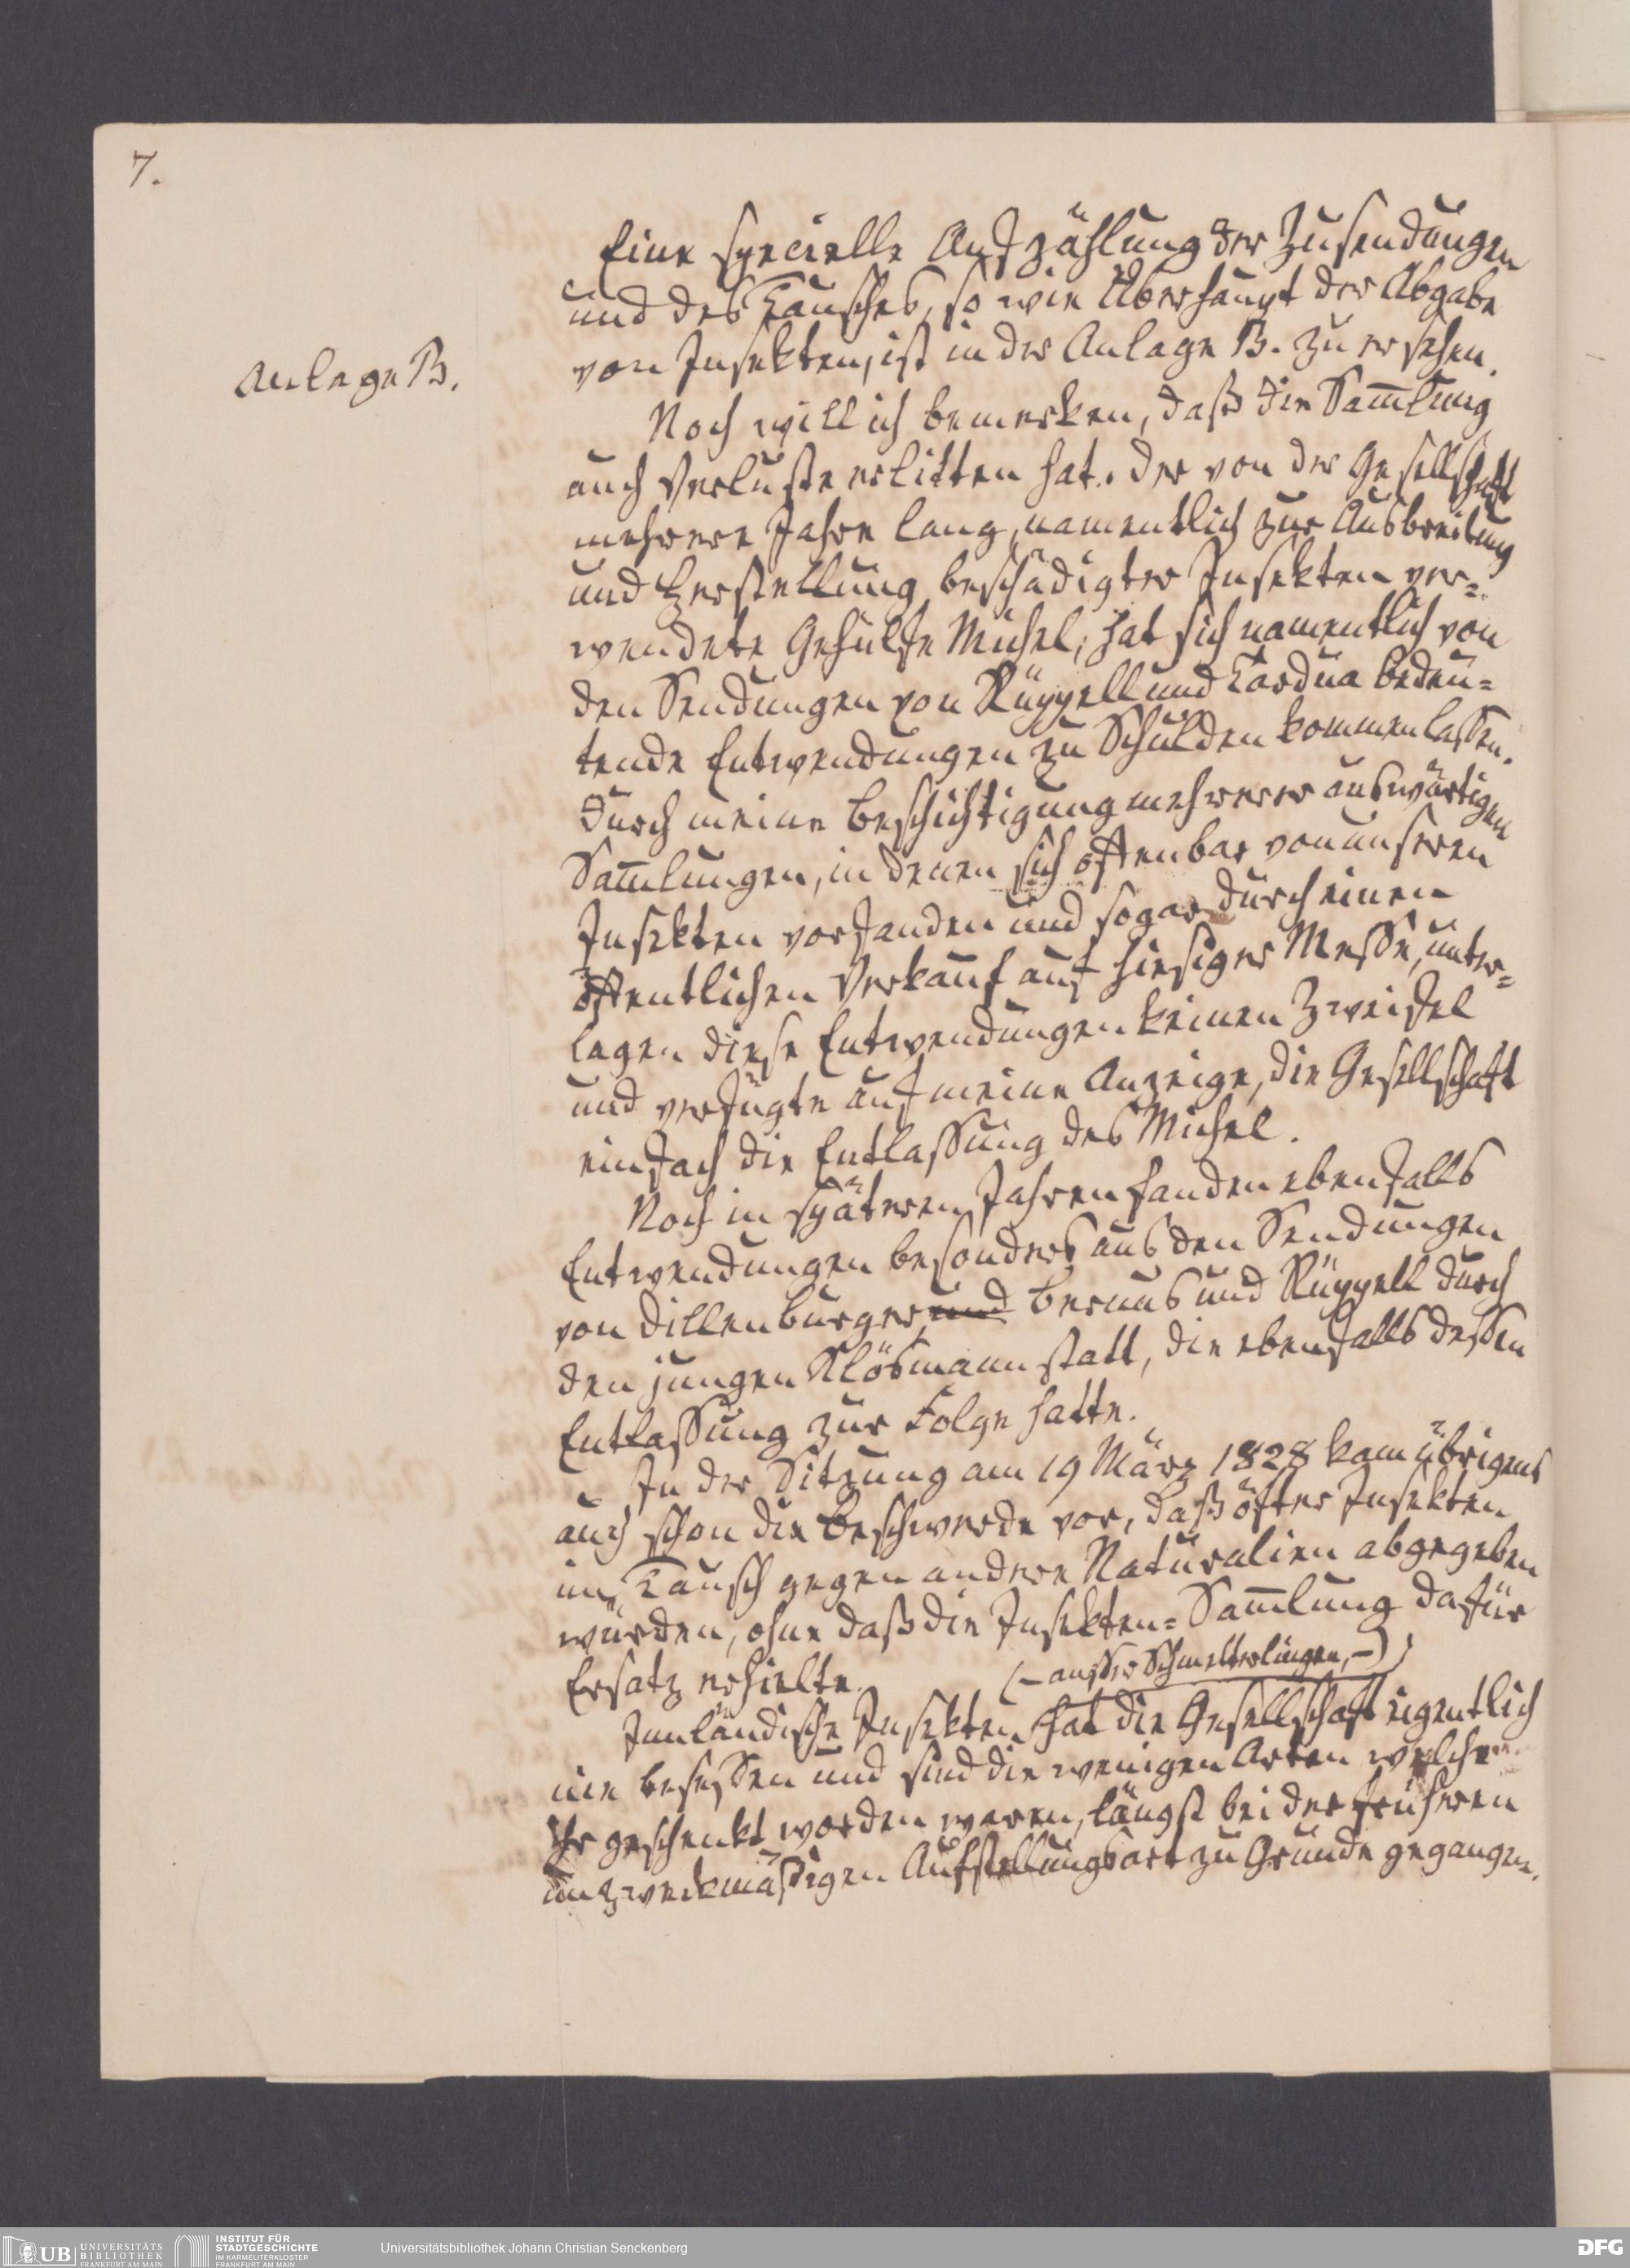 7.
Eine specielle Aufzählung der Zusendungen
und des Tausches, so wie überhaupt der Abgabe
von Insekten, ist in der Anlage B. zu ersehen.
Anlage B.
Noch will ich bemerken, daß die Sam̄lung
auch Verluste erlitten hat. Der von der Gesellschaft
mehrere Jahre lang, namentlich zur Ausbreitung
und Herstellung beschädigter Insekten ver=
wendete Gehülfe Michel, hat sich namentlich von
den Sendungen von Rüppell und Cardua bedeu=
tende Entwendungen zu Schulden kommen lassen.
Durch meine Besichtigung mehrerer auswärtigen
Sam̄lungen, in denen sich offenbar von unseren
Insekten vorfanden und sogar durch einen
öffentlichen Verkauf auf hiesiger Messe, unter=
lagen diese Entwendungen keinen Zweifel
und verfügte auf meine Anzeige, die Gesellschaft
einfach die Entlassung des Michel.
Noch in späteren Jahren fanden ebenfalls
Entwendungen besonders aus den Sendungen
von Dillenburger, und Bernus und Rüppell durch
den jungen Klösmann statt, die ebenfalls dessen
Entlassung zur Folge hatte.
In der Sitzung am 19 März 1828 kam übrigens
auch schon die Beschwerde vor, daß öfter Insekten
im Tausch gegen andere Naturalien abgegeben
würden, ohne daß die Insekten=Sam̄lung dafür
Ersatz erhielte.
(– ausser Schmetterlingen, –)
Innländische Insekten hat die Gesellschaft eigentlich
nie besessen und sind die wenigen Arten welche
Ihr geschenkt worden waren, längst bei der früheren
unzweckmäßigen Aufstellungsart zu Grunde gegangen.
UB UNIVERSITÄTS
BIBLIOTHEK
FRANKFURT AM MAIN
INSTITUT FÜR
STADTGESCHICHTE
IM KARMELITERKLOSTER
FRANKFURT AM MAIN
Universitätsbibliothek Johann Christian Senckenberg
DFG